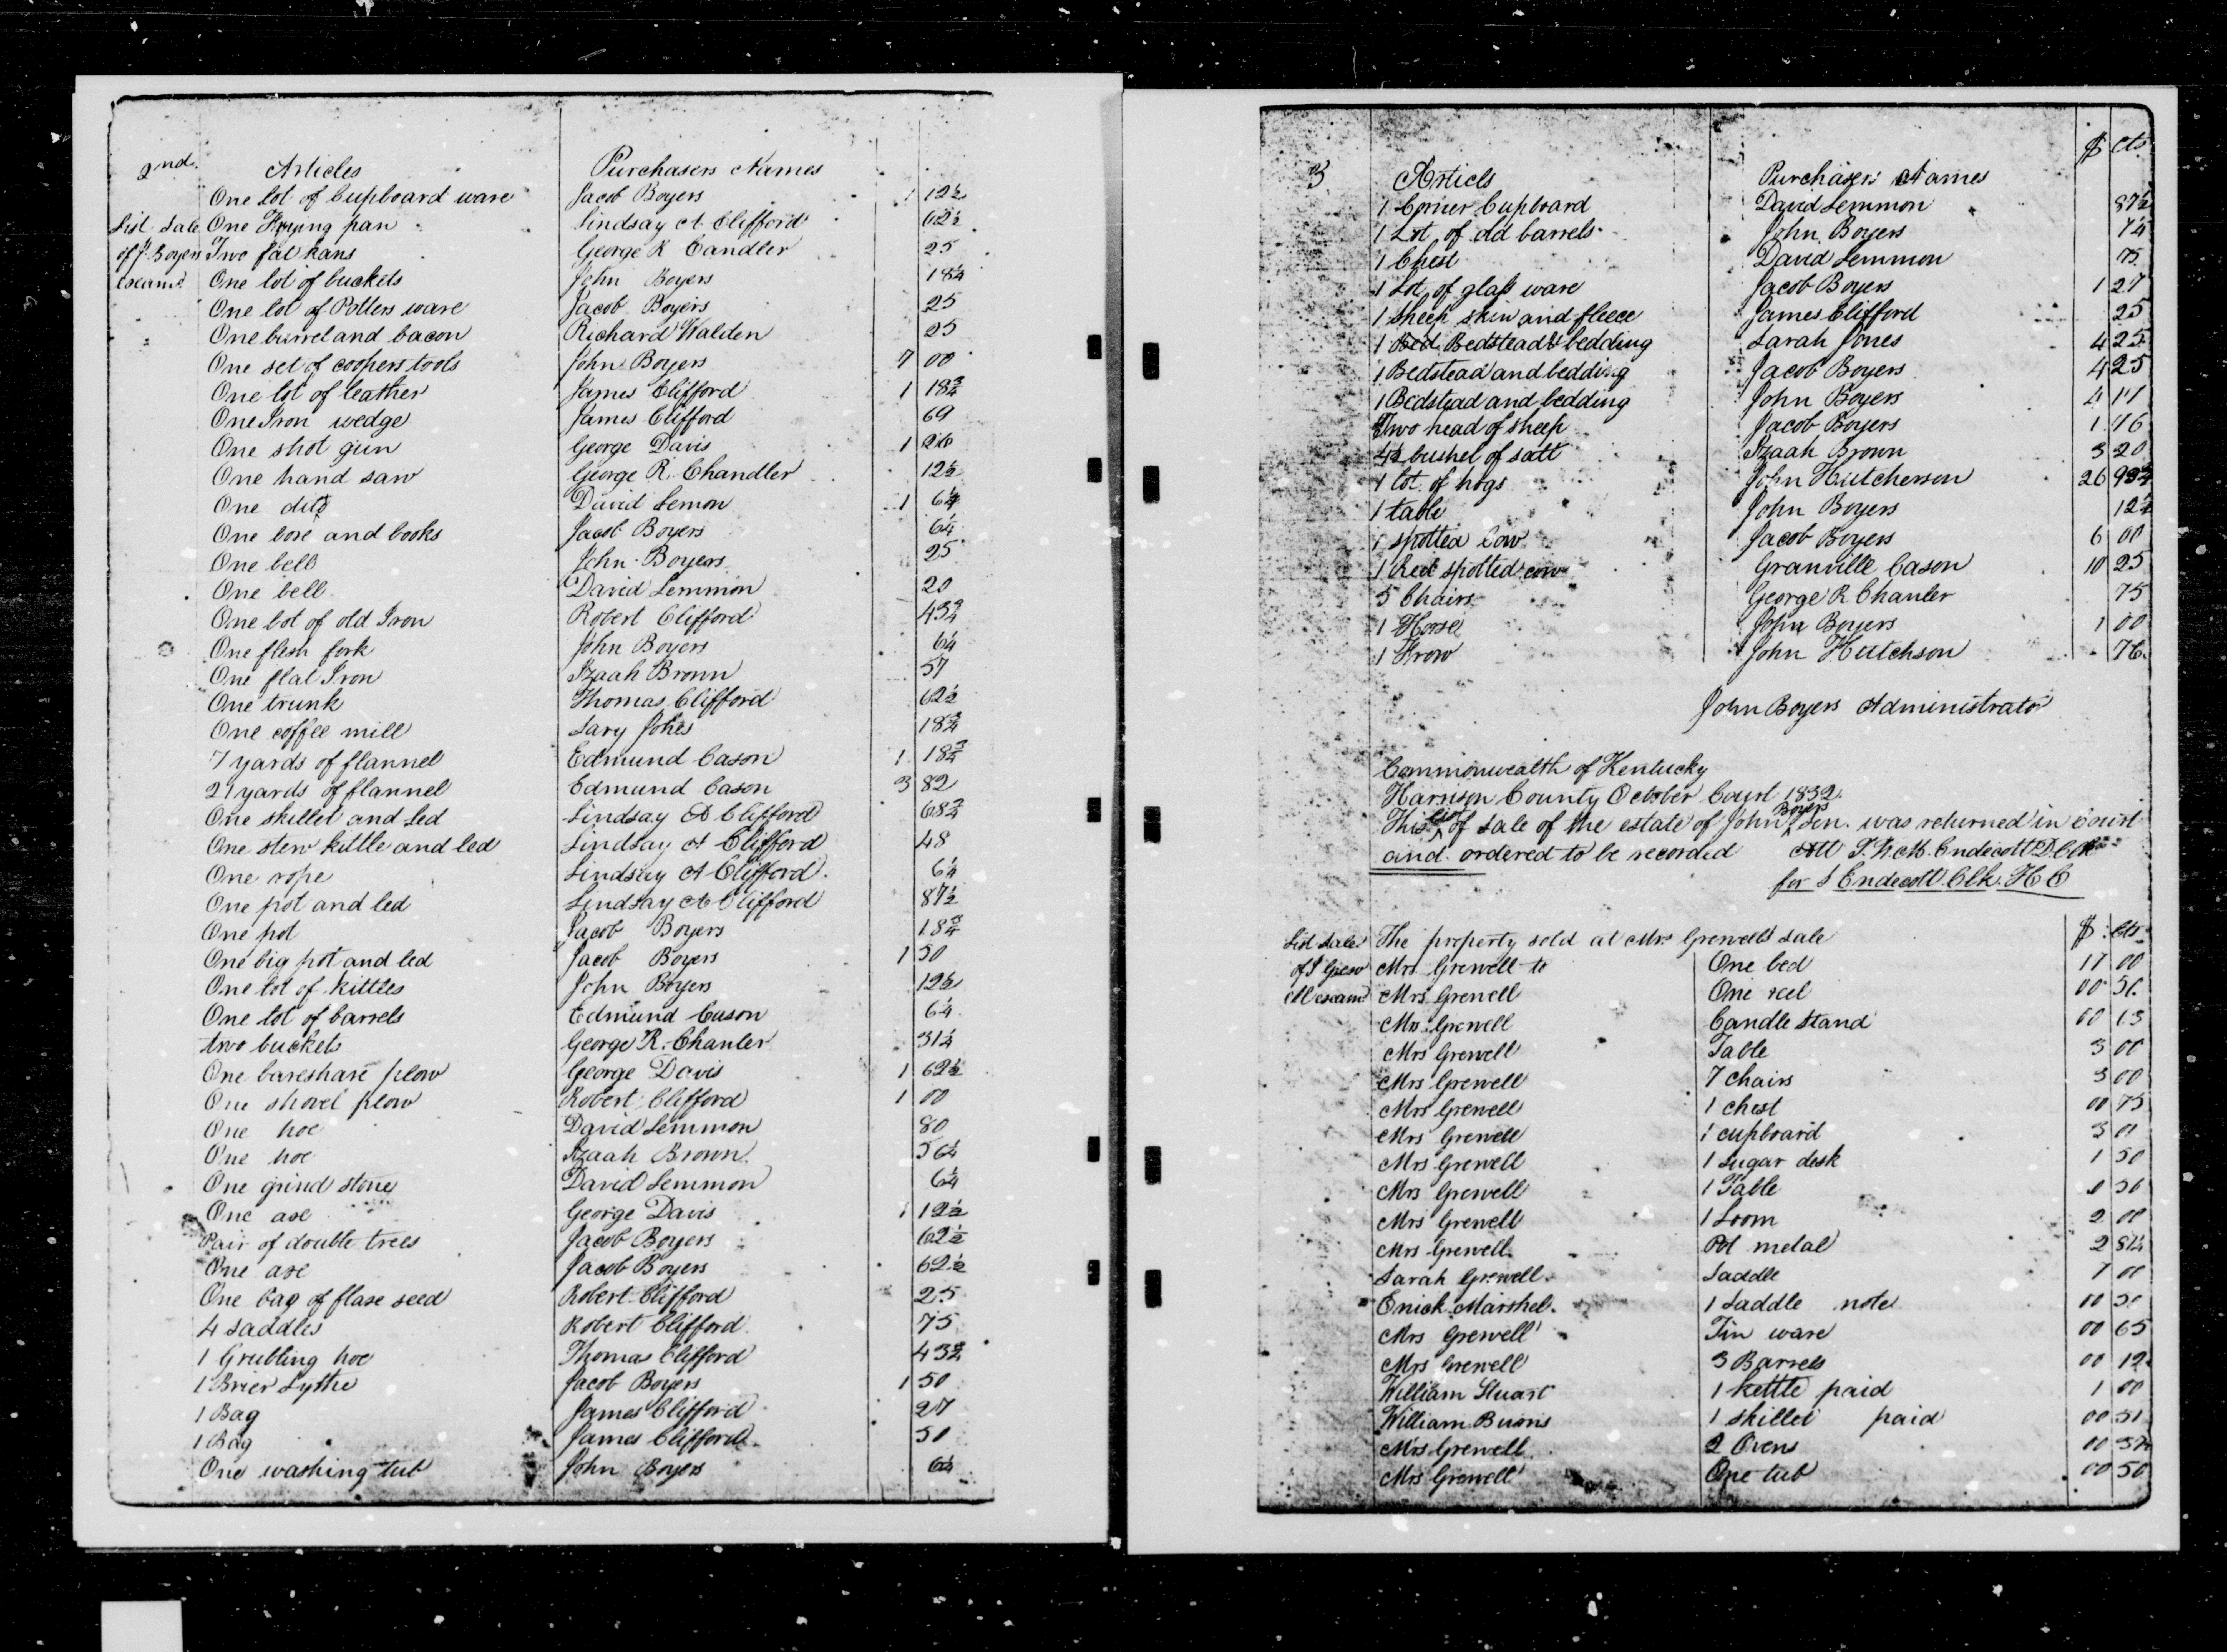 2nd Articles Purchasers Names
One Lot of Cupboard ware Jacob Boyers 1 12½
List Sale One Frying pan Lindsay A Clifford 62½
of J. Boyers Two fat kans George R Candler 25
exam.d One lot of buckets John Boyers 18¾
One lot of Potters ware Jacob Boyers 25
One barrel and bacon Richard Walden 25
One set of coopers tools John Boyers 7 00
One lot of leather James Clifford 1 18¾
One Iron wedge James Clifford 69
One shot gun George Davis 1 26
One hand saw George R. Chandler 12½
One ditto David Lemon 1 6¼
One box and books Jacob Boyers 6¼
One bell John Boyers 25
One bell David Lemmon 20
One lot of old Iron Robert Clifford 43¾
One flesh fork John Boyers 6¼
One flat Iron Izaah Brown 57
One trunk Thomas Clifford 62½
One coffee mill Sary Jones 18¾
7 yards of flannel Edmund Cason 1 18¾
21 yards of flannel Edmund Cason 3 82
One skillet and Led Lindsay A Clifford 68¾
One stew kittle and led Lindsay A Clifford 48
One rope Lindsay A Clifford. 6¼
One pot and led Lindsay A Clifford 87½
One pot Jacob Boyers 18¾
One big pot and led Jacob Boyers 1 50
One lot of kittles John Boyers 12½
One lot of barrels Edmund Cason 6¼
two buckets George R. Chanler 31¼
One bareshare plow George Davis 1 62½
One shovel plow Robert Clifford 1 00
One hoe David Lemmon 80
One hoe Izaah Brown 56¼
One grind stone David Lemmon 6¼
One axe George Davis 1 12½
Pair of double trees Jacob Boyers 62½
One axe Jacob Boyers 62½
One bag of flaxe seed Robert Clifford 25
4 Saddles Robert Clifford 75
1 Grubling hoe Thomas Clifford 43¾
1 Brier Sythe Jacob Boyers 1 50
1 Bag James Clifford 27
1 Bag James Clifford 50
One washing tub John Boyers 6¼
3 Articls Purchasers Names $ cts
1 Corner Cupboard David Lemmon 87½
1 Lot of old barrels John Boyers 7¼
1 Chest David Lemmon 75
1 Lot of glass ware Jacob Boyers 1 27
1 sheep skin and fleece James Clifford 25
1 Bed Bedstead & bedding Sarah Jones 4 25
1 Bedstead and bedding Jacob Boyers 4 25
1 Bedstead and bedding John Boyers 4 17
Two head of sheep Jacob Boyers 1 46
4½ bushel of salt Izaah Brown 3 20
1 lot of hogs John Hutcherson 26 93¾
1 table John Boyers 12½
1 spotted Cow Jacob Boyers 6 00
1 Red spotted cow Granville Cason 10 25
5 Chairs George R Chanler 75
1 Horse John Boyers 1 00
1 Frow John Hutchson 76
John Boyers Administrator
Commonwealth of Kentucky
Harrison County October Court 1832.
This list of sale of the estate of John Boyers Sen. was returned in Court
and ordered to be recorded Att T.N.M. Endecott D.Clk
for S Endecott Clk. H C
List Sale The property sold at Mrs Grewells sale $ cts
of S Grew Mrs Grewell to One bed 11 00
ell exam Mrs Grewell One reel 00 50
Mrs Grewell Candle stand 00 13
Mrs Grewell Table 3 00
Mrs Grewell 7 chairs 3 00
Mrs Grewell 1 chest 00 75
Mrs Grewell 1 cupboard 3 01
Mrs Grewell 1 sugar desk 1 50
Mrs Grewell 1 Table 50
Mrs Grewell 1 Loom 2 00
Mrs Grewell Pot metal 2 81¼
Sarah Grewell Saddle 1 00
Enick Marshel 1 Saddle note 10 50
Mrs Grewell Tin ware 00 65
Mrs Grewell 3 Barrels 00 12
William Stuart 1 kettle paid 1 00
William Burns 1 skillet paid 00 51
Mrs Grewell 2 Ovens 00
Mrs Grewell One tub 00 50